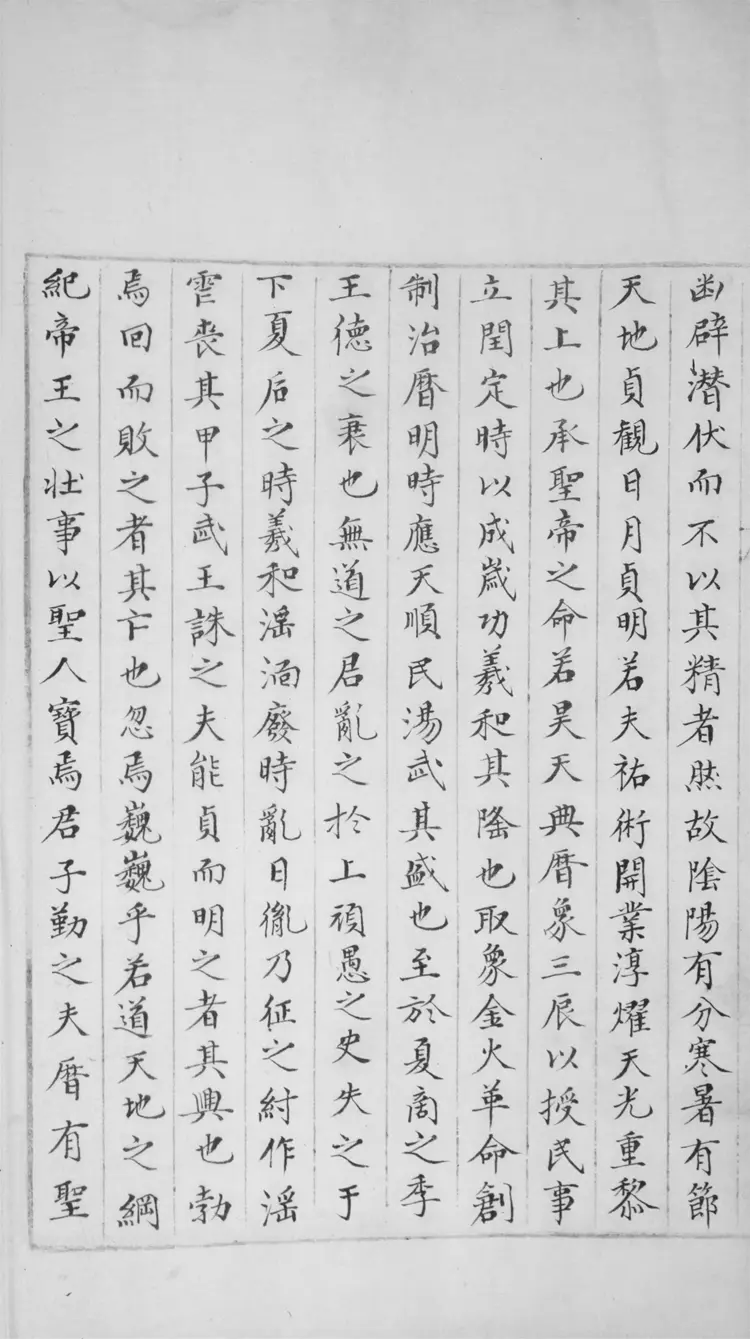 幽辟潜伏而不以其精者然故陰陽有分寒暑有節
天地貞観日月貞明若夫祐術開業淳燿天光重黎
其上也承聖帝之命若昊天典曆象三辰以授民事
立閏定時以成歲功羲和其隆也取象金火革命創
制治曆明時應天順民湯武其盛也至於夏商之季
王德之衰也無道之君亂之於上頑愚之史失之于
下夏后之時羲和滛湎廢時亂日胤乃征之紂作滛
霍喪其甲子武王誅之夫能貞而明之者其興也勃
焉回而敗之者其亡也忽焉巍巍乎若道天地之綱
紀帝王之壮事以聖人寶焉君子勤之夫曆有聖